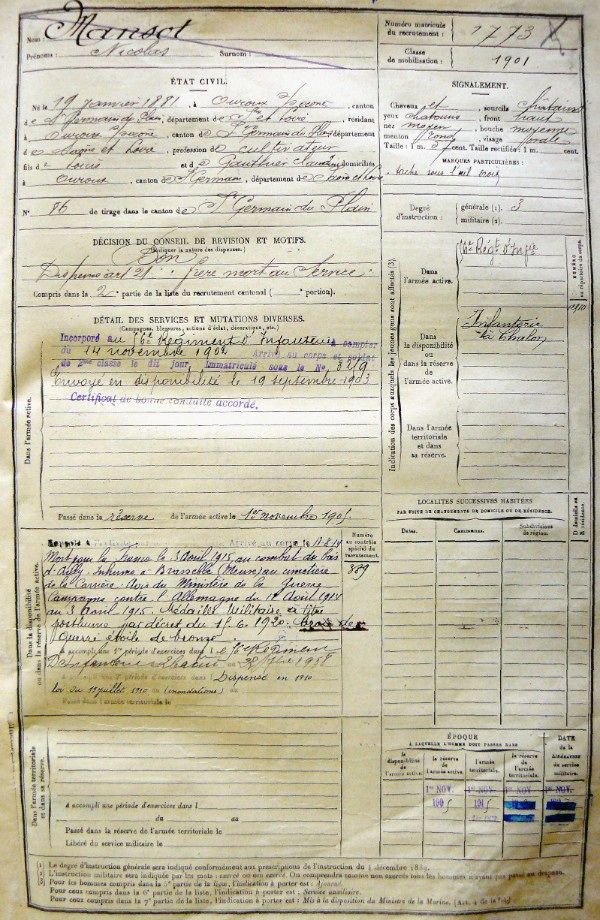 Nom : Mansot
Prénoms : Nicolas Surnom :
Numéro matricule du recrutement : 1773
Classe de mobilisation : 1901
ÉTAT CIVIL.
Né le 19 janvier 1881, à Ouroux Saône, canton
d St Germain du Plain, département de Sne et Loire, résidant
à Ouroux Saône, canton de St Germain du Plain, département
d Saône et Loire, profession de cultivateur
fils d Louis et d Gauthier Claudine domiciliés
à Ouroux, canton de St Germain, département de Saône et Loire
N° 86 de tirage dans le canton de St Germain du Plain
SIGNALEMENT.
Cheveux et sourcils chatains
yeux chatains front haut
nez moyen, bouche moyenne
menton rond, visage ovale
Taille : 1 m. cent. Taille rectifiée : 1 m. cent.
MARQUES PARTICULIÈRES :
sous l'œil droit
Degré d'instruction : générale (1). 3
militaire (2).
DÉCISION DU CONSEIL DE RÉVISION ET MOTIFS.
(Indiquer la nature des dispenses.)
Bon
Dispensé art 21 : frère mort au Service.
Compris dans la 2e partie de la liste du recrutement cantonal ( portion).
DÉTAIL DES SERVICES ET MUTATIONS DIVERSES.
(Campagnes, blessures, actions d'éclat, décorations, etc.)
Dans l'armée active.
Incorporé au 56e Régiment d'Infanterie à compter
du 14 novembre 1902 Arrivé au corps et soldat
de 2me classe le dit jour, Immatriculé sous le N° 3219
Envoyé en disponibilité le 19 septembre 1903
Certificat de bonne conduite accordé,
Passé dans la réserve de l'armée active le 1er novembre 1905
Indication des corps auxquels les jeunes gens sont affectés (3).
NUMÉRO au répertoire du corps.
Dans l'armée active.
56e Régt d'Infie
Dans la disponibilité ou dans la réserve de l'armée active.
Infanterie
à Chalon
Dans l'armée territoriale et dans sa réserve.
LOCALITÉS SUCCESSIVES HABITÉES
PAR SUITE DE CHANGEMENTS DE DOMICILE OU DE RÉSIDENCE.
Dates. Communes. Subdivisions de région. D domicile ou R résidence.
Dans la disponibilité ou dans la réserve de l'armée active.
Arrivé au corps le 12-8-14
Numéro au contrôle spécial du recrutement
389
Mort pour la France le 5 avril 1915 au combat du bois
d'Ailly. Inhumé à Brasseitte (Meuse) au cimetière
de la Carrière. Avis du Ministère de la Guerre
Campagne contre l'Allemagne du 12 Août 1914
au 5 avril 1915. Médaille Militaire à titre
posthume par décret du 15-6-1920. Croix de
guerre étoile de bronze.
A accompli une 1re période d'exercices dans l 56e Régiment
D'Infanterie 1908
A accompli une 2e période d'exercices dans Dispensé en 1910
loi du 11 juillet 1910 (inondations)
Passé dans l'armée territoriale le
Dans l'armée territoriale et dans sa réserve.
A accompli une période d'exercices dans l
du au
Passé dans la réserve de l'armée territoriale le
Libéré du service militaire le
ÉPOQUE
À LAQUELLE L'HOMME DOIT PASSER DANS
la disponibilité de l'armée active. la réserve de l'armée active. l'armée territoriale. la réserve de l'armée territoriale. DATE de la LIBÉRATION du service militaire.
1er NOV. 1er NOV. 1er NOV. 1er NOV.
1905 1915
(1) Le degré d'instruction générale sera indiqué conformément aux prescriptions de l'instruction du 4 décembre 1889.
Pour ceux compris dans la 6e partie de la liste, l'indication à porter est : Service auxiliaire.
Pour ceux compris dans la 7e partie de la liste, l'indication à porter est : Mis à la disposition du Ministre de la Marine.